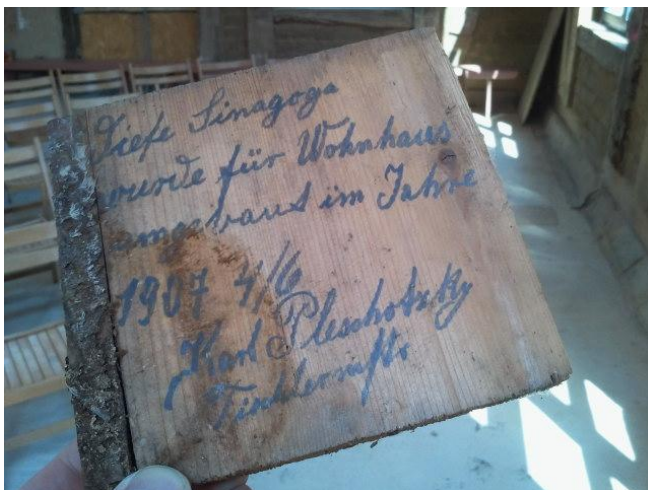 Diese Sinagoga
wurde für Wohnhaus
umgebaut im Jahre
1907 4/6
Karl Pleschotzky
Tischlermstr